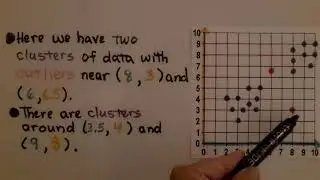 Here we have two
clusters of data with
outliers near (8, 3) and
(6, 6.5)
There are clusters
around (3.5, 4) and
(9, 8)
10
9
8
7
6
5
4
3
2
1
0
0 1 2 3 4 5 6 7 8 9 10